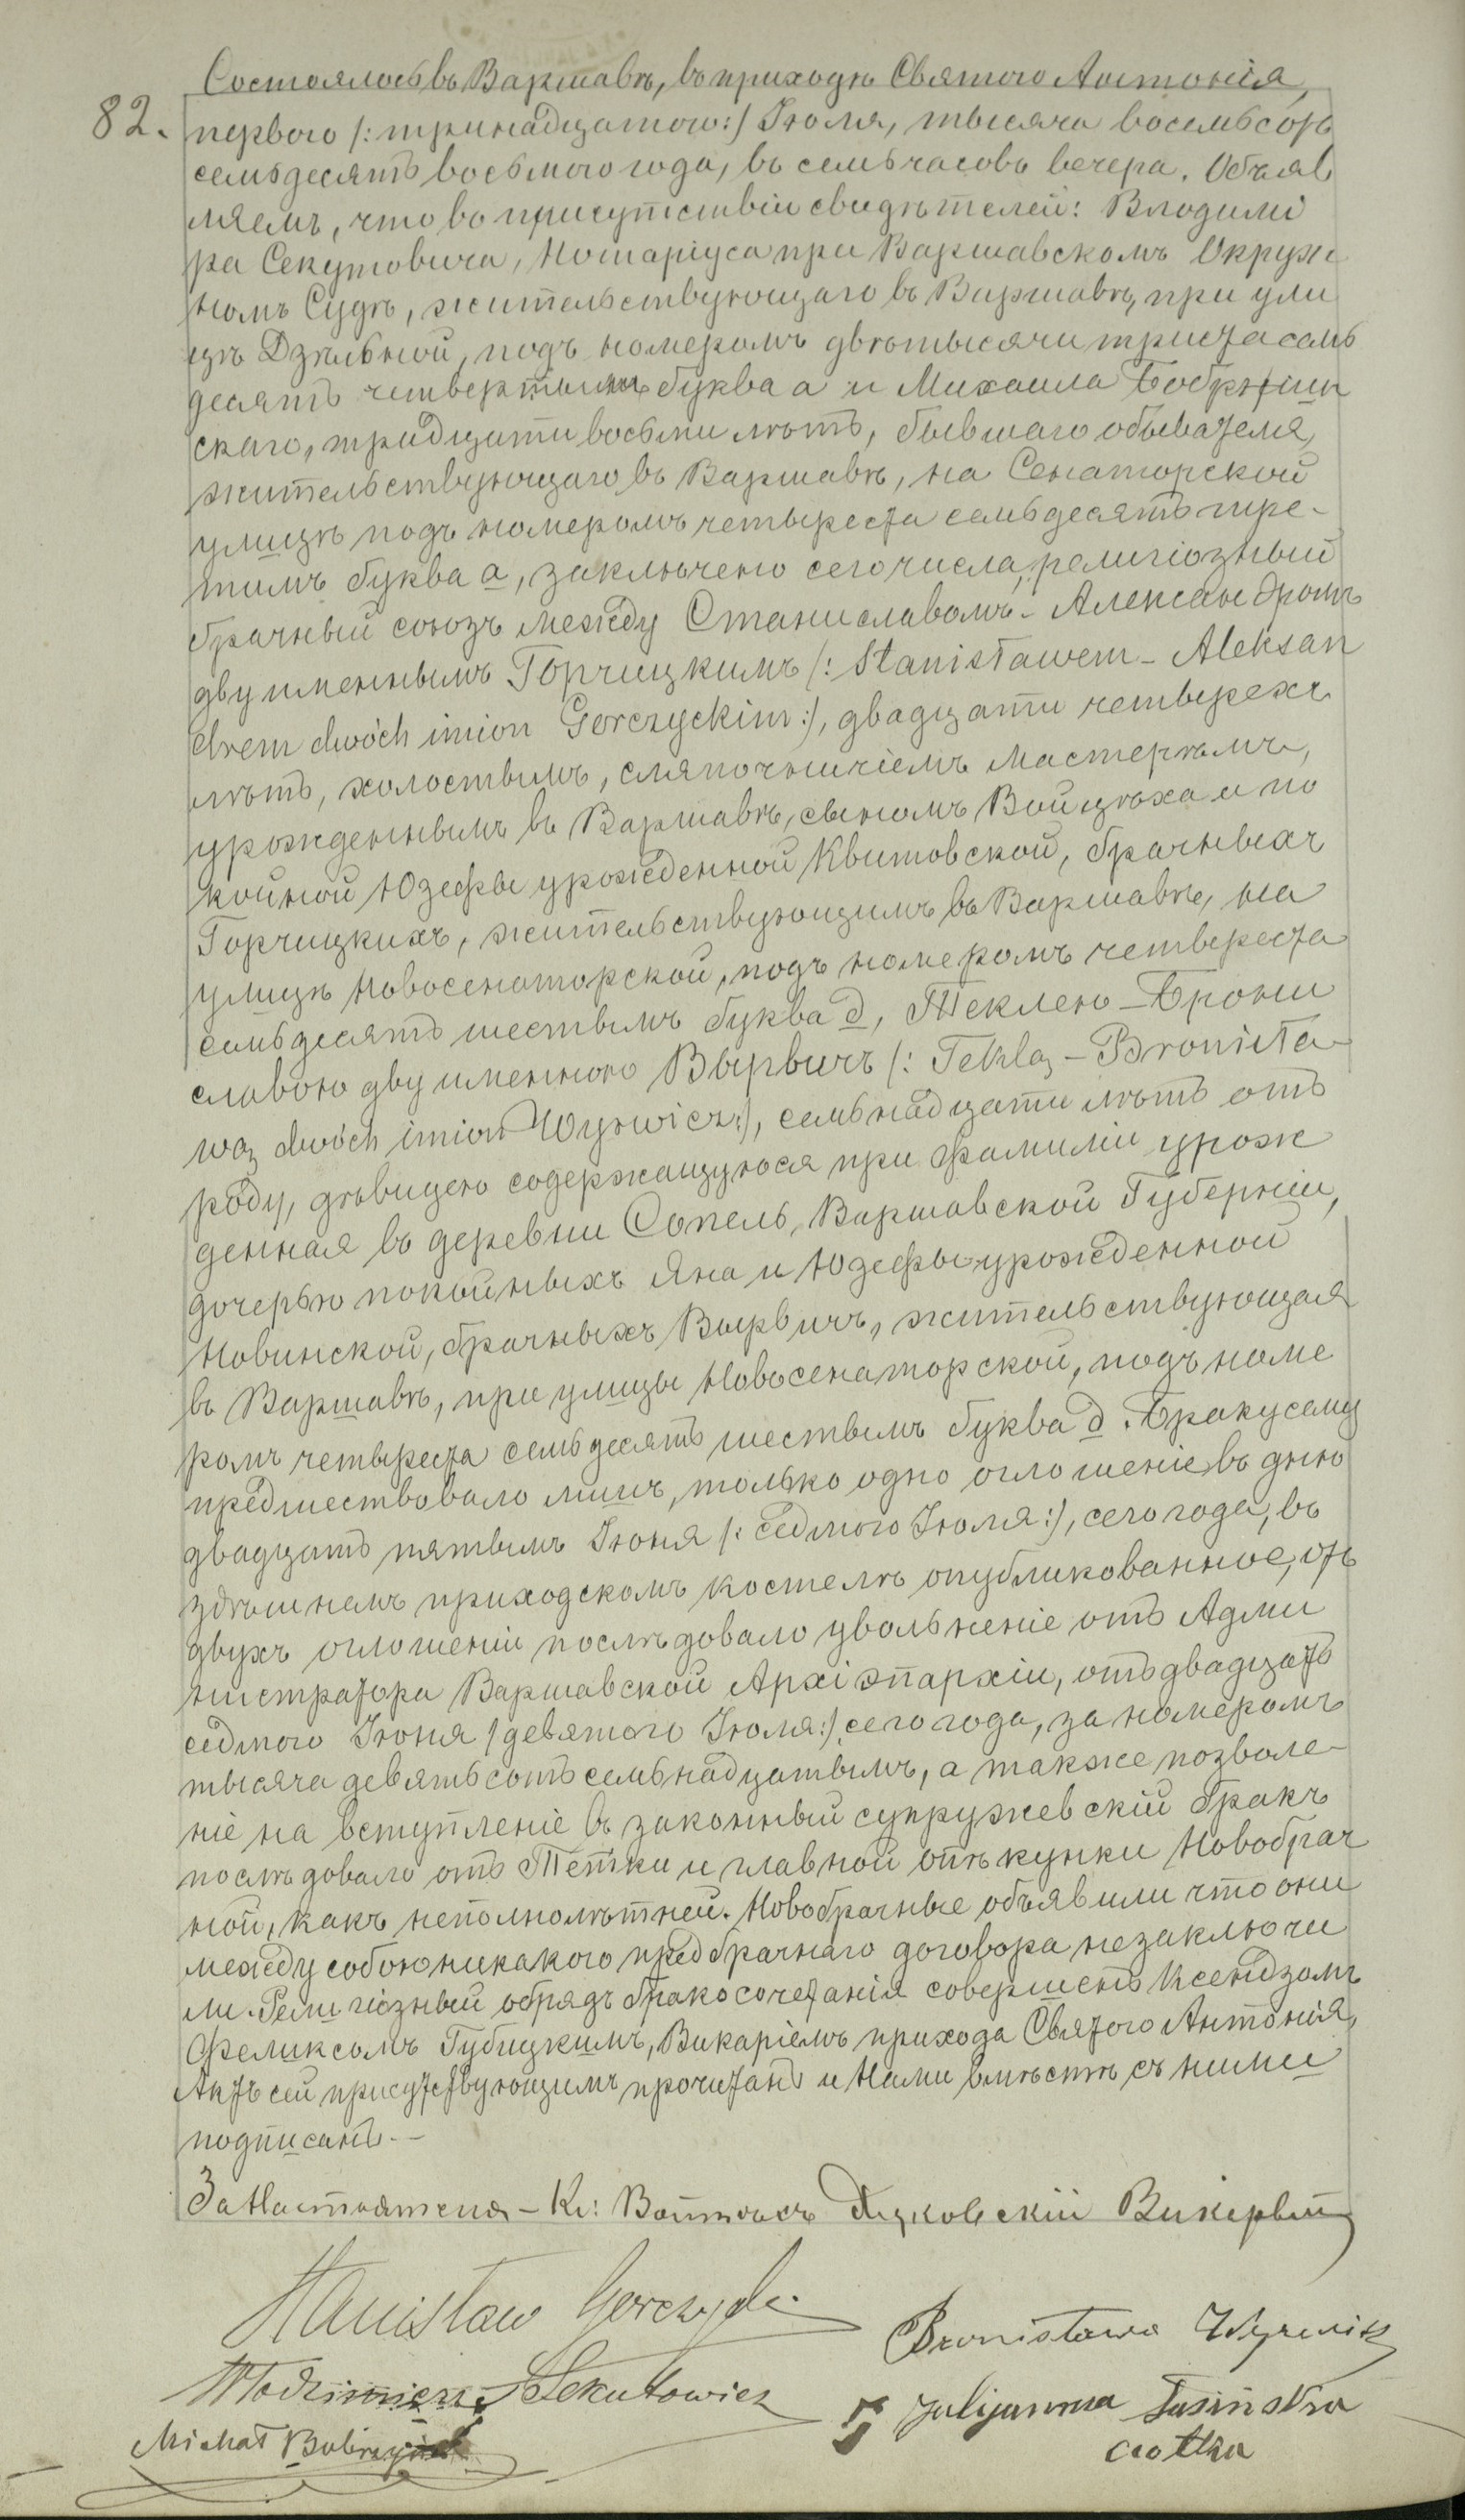 Состоялось въ Варшавѣ, въ приходѣ Святого Антонія,
82. перваго /: тринадцатого :/ Іюля, тысяча восемьсотъ
семьдесятъ восьмого года, въ семь часовъ вечера. Объяв
ляемъ, что въ присутствіи свидѣтелей: Влодими
ра Секутовича, Нотаріуса при Варшавскомъ Окруж
номъ Судѣ, жительствующаго въ Варшавѣ, при ули
цѣ Дзѣльной, подъ номеромъ двѣ тысячи триста семь
десятъ четвертымъ буква а и Михаила Бобржин
скаго, тридцати восьми лѣтъ, бывшаго обывателя,
жительствующаго въ Варшавѣ, на Сенаторской
улицѣ подъ номеромъ четыреста семьдесятъ тре-
тимъ буква а, заключено сего числа, религіозный
брачный союзъ между Станиславомъ-Александромъ
двуименнымъ Горчицкимъ /: Stanisławem-Aleksan
drem dwóch imion Gorczyckim :/, двадцати четырехъ
лѣтъ, холостымъ, сляпочничіемъ мастеркомъ,
урожденнымъ въ Варшавѣ, сыномъ Войцѣха и по
койной Юзефы урожденной Квитовской, брачныхъ
Горчицкихъ, жительствующимъ въ Варшавѣ, на
улицѣ Новосенаторской, подъ номеромъ четыреста
семьдесятъ шестымъ буква д, Теклею-Брони
славою двуименною Вырвичъ /: Teklą-Bronisła-
wą dwóch imion Wyrwicz :/, семьнадцати лѣтъ отъ
роду, дѣвицею содержащуюся при фамиліи урож
денная въ деревни Сопель, Варшавской Губерніи,
дочерью покойныхъ Яна и Юзефы урожденной
Новинской, брачныхъ Вырвичъ, жительствующая
въ Варшавѣ, при улицы Новосенаторской, подъ номе
ромъ четыреста семьдесятъ шестымъ буква д. Браку сему
предшествовало лишъ, только одно оглошеніе въ дню
двадцать пятымъ Іюня /: седмого Іюля :/, сего года, въ
здѣшнемъ приходскомъ костелѣ опубликованное, отъ
двухъ оглошеніи послѣдовало увольненіе отъ Адми
нистратора Варшавской Архіэпархіи, отъ двадцать
седмого Іюня / девятого Іюля :/ сего года, за номеромъ
тысяча девятьсотъ семьнадцатымъ, а также позволе-
ніе на вступленіе въ законный супружевскій бракъ
послѣдовало отъ Тетки и главной опѣкунки Новобрач
ной, какъ неполнолѣтней. Новобрачные объявили что они
между собою никакого предбрачнаго договора незаключи
ли. Религіозный обрядъ бракосочетанія совершенъ Ксендзомъ
Феликсомъ Губицкимъ, Викаріемъ прихода Святого Антонія,
Актъ сей присутствующимъ прочитанъ и Нами вмѣстѣ съ ними
подписанъ.—
За Настоятеля - Кс: Викарый
Stanisław Gorczycki
Bronisława Wyrwicz
Włodzimierz Sekutowicz
Julijanna Jasińska
Michał Bobrzyński
ciotka